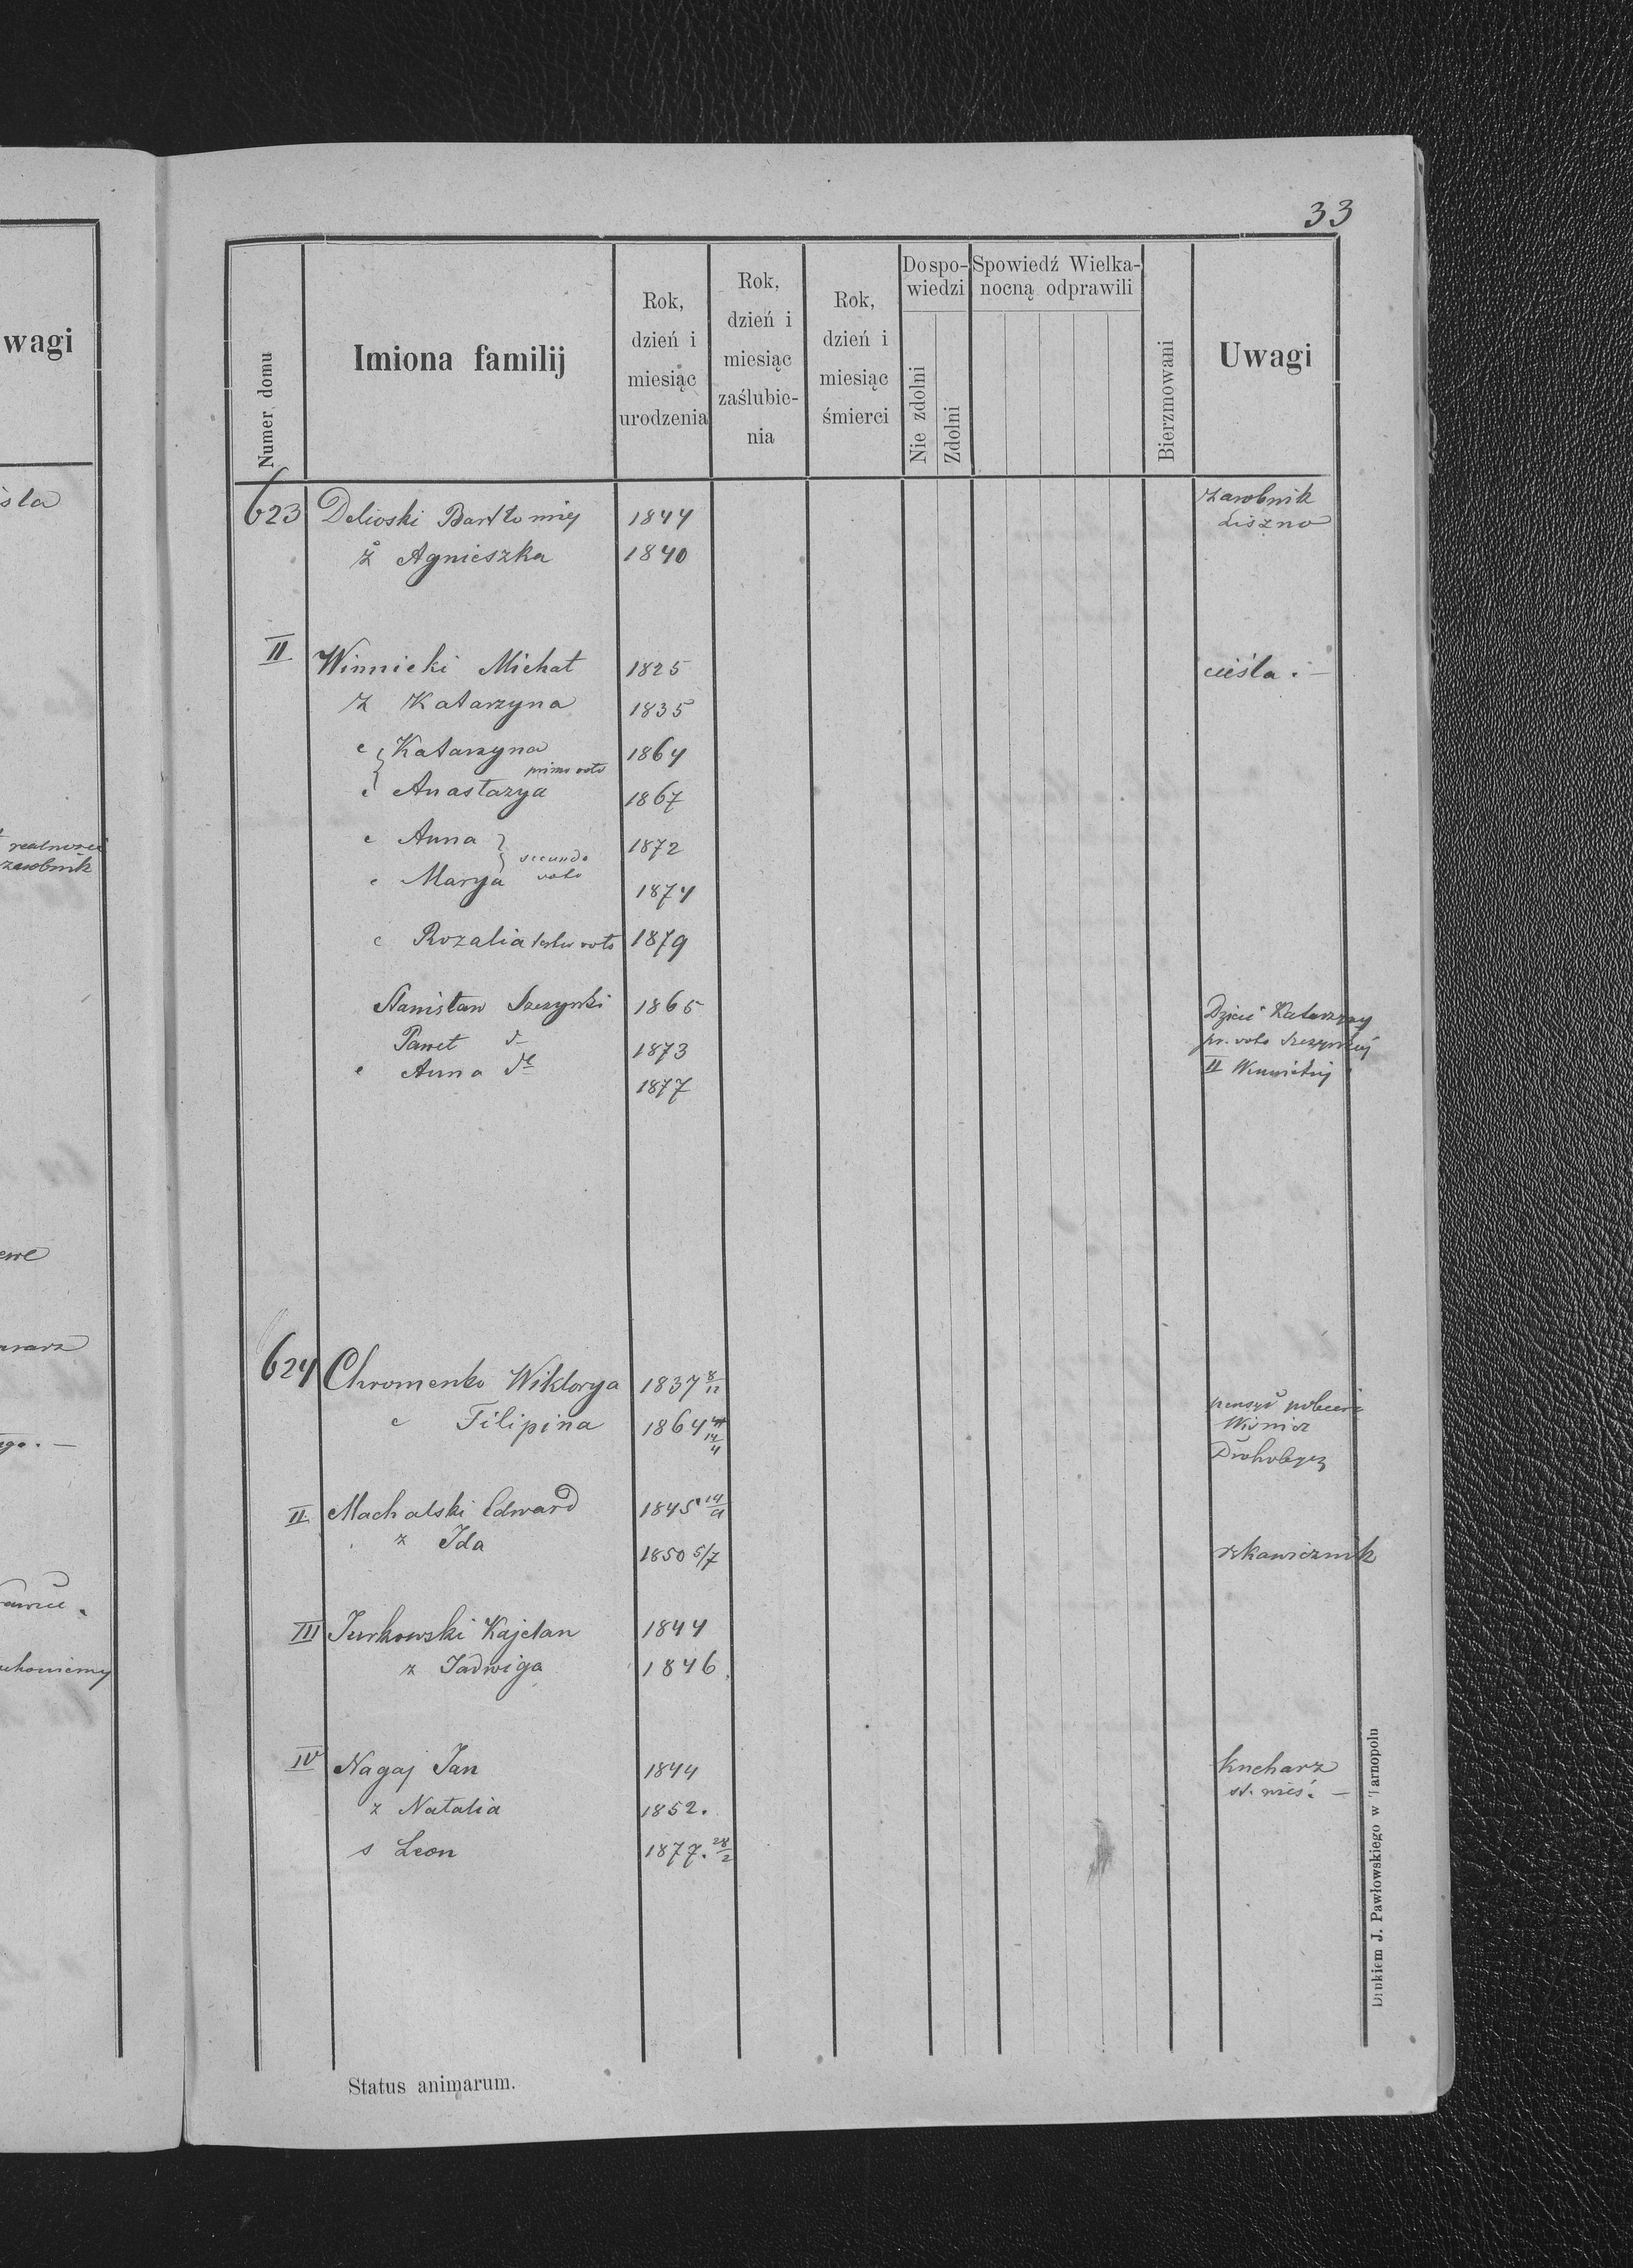 33
wagi
Numer domu
Imiona familij
Rok, dzień i miesiąc urodzenia
Rok, dzień i miesiąc zaślubie-nia
Rok, dzień i miesiąc śmierci
Do spo-wiedzi
Nie zdolni
Zdolni
Spowiedź Wielka-nocną odprawili
Bierzmowani
Uwagi
623 Delioski Bartłomiej 1844 zarobnik
Liszno
ż Agnieszka 1840
II Winnicki Michał 1825 cieśla . —
ż Katarzyna 1835
c Katarzyna 1864
primo voto
c Anastazya 1867
c Anna 1872
secundo
c Marya voto 1874
c Rozalia voto 1879
Stanisław 1865
Paweł 1873
c Anna 1877
Dzieci Katarzyny
pr. voto
II
624 Chromenko Wiktorya 1837 8/11
c Filipina 1864 14/4
Wiśnicz
Drohobycz
II. Machalski Edward 1845
z Ida 1850 5/7
rękawicznik
III Jurkowski Kajetan 1844
z Jadwiga 1846
IV Nagaj Jan 1844 kucharz
z Natalia 1852.
s Leon 1877. 28/2
Status animarum.
Drukiem J. Pawłowskiego w Tarnopolu
zarobnik